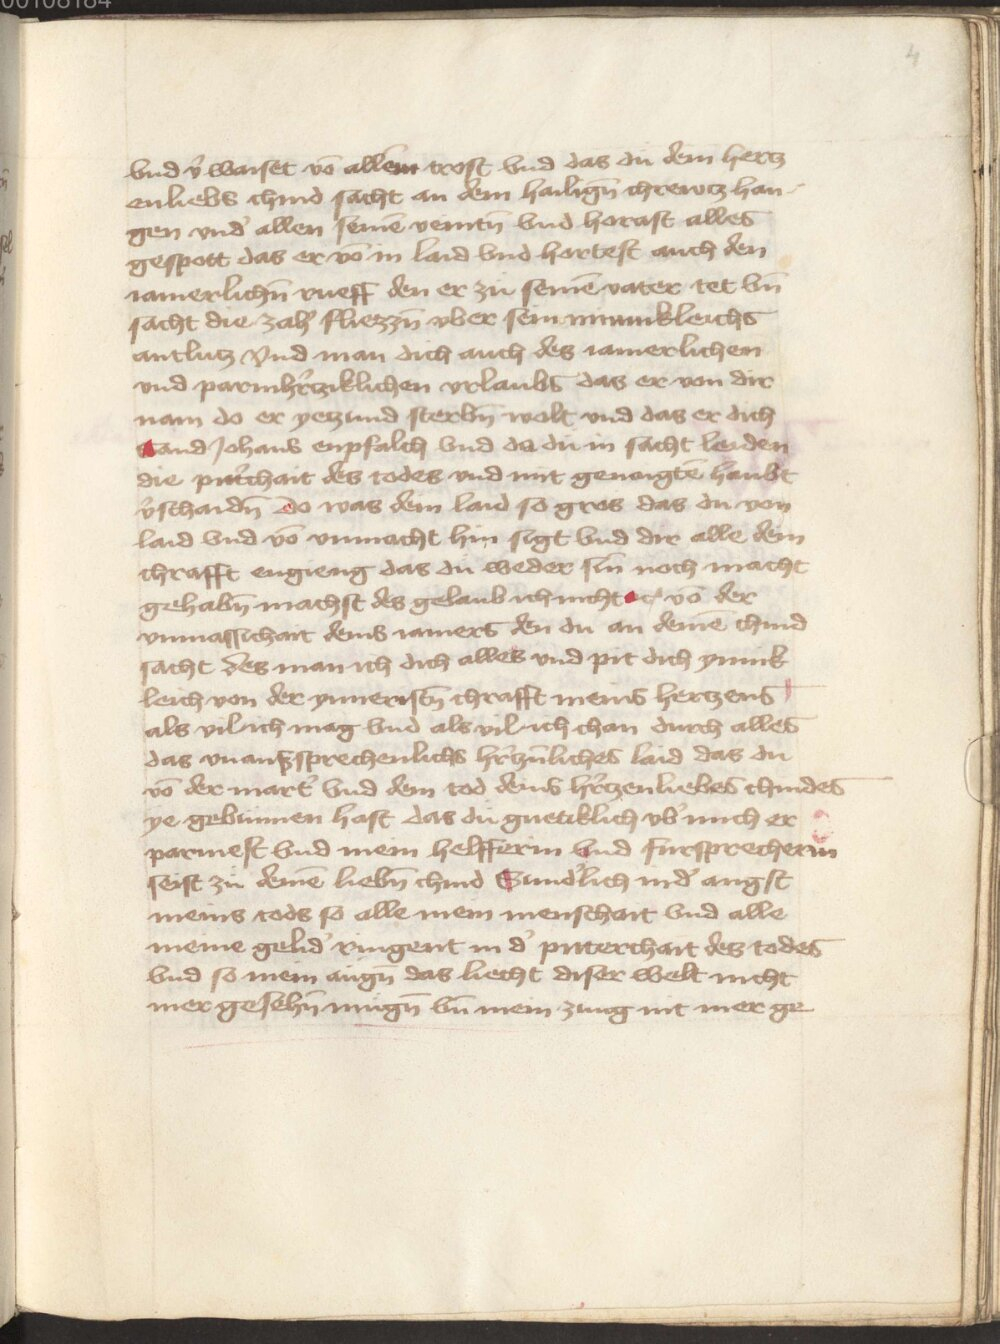 00108184
4
vnd v̉waiset võ allem trost vnd das du dein hertz
enliebs chind sacht an dem hailigñ chrewtz han-
gen vnd̉ allen seinẽ veintñ vnd horast alles
gespott das er võ in laid vnd hortest auch den
iamerlichñ rueff den er zu seinẽ vater tet vñ
sacht die zah̉ fliezzñ vber sein mynnikleichs
antlutz Vnd man dich auch des iamerlichen
vnd parmh̉rziklichen vrlaubs das er von dir
nam do er yetzund sterbñ wolt vnd das er dich
Sand Johans enpfalch vnd da du in sacht leiden
die pitt̉chait des todes vnd mit genaigtẽ haubt
v̉schaidñ Do was dein laid so gros das du von
laid vnd võ vnmacht hin sigt vnd dir alle dein
chrafft engieng das du weder sin noch macht
gehabñ machst des gelaub ich nicht võ der
vnmassichait deins iamers den du an deinẽ chind
sacht des man ich dich alles vnd pit dich ynnik
leich von der ynneristñ chrafft meins hertzens
als vil ich mag vnd als vil ich chan durch alles
das vnaussprechenlichs h̉rtznliches laid das du
võ der mart̉ vnd dem tod deins h̉rtzenliebes chindes
ye gebunnen hast das du guetiklich vb̉ mich er
parmest vnd mein helfferin vnd fursprecherin
seist zu deinẽ liebñ chind Sund̉lich in d̉ angst
meins tods so alle mein menschait vnd alle
meine gelid̉ ringent in d̉ pitterchait des todes
vnd so mein augñ das liecht diser welt nicht
mer gesehñ mugñ vñ mein zung nit mer ge